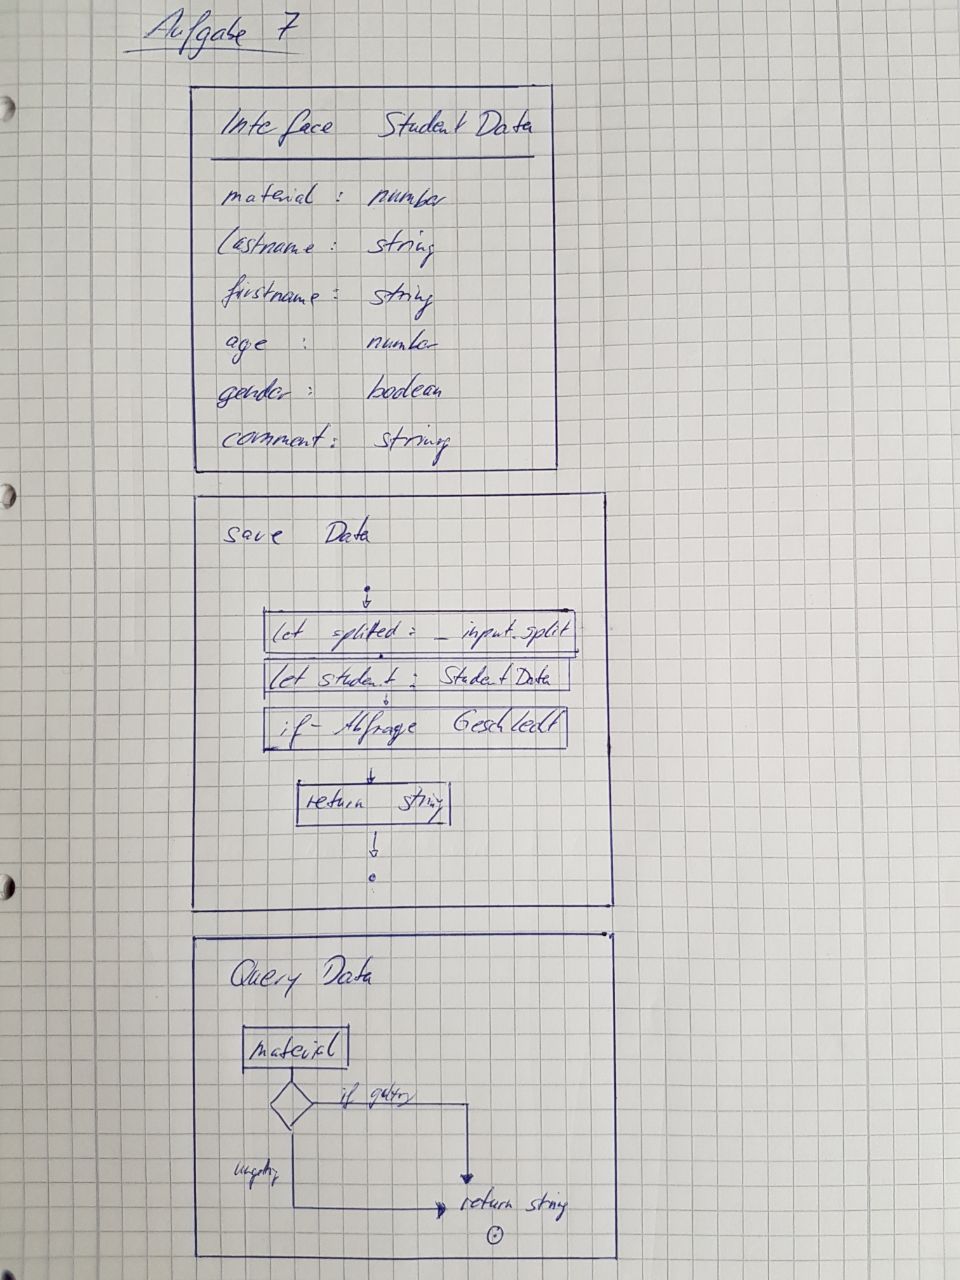 Aufgabe 7
Interface StudentData
material : number
lastname : string
firstname : string
age : number
gender : boolean
comment : string
save Data
let splitted : _input.split
let student : StudentData
if-Abfrage Geschlecht
return string
Query Data
material
if gültig
ungültig
return string